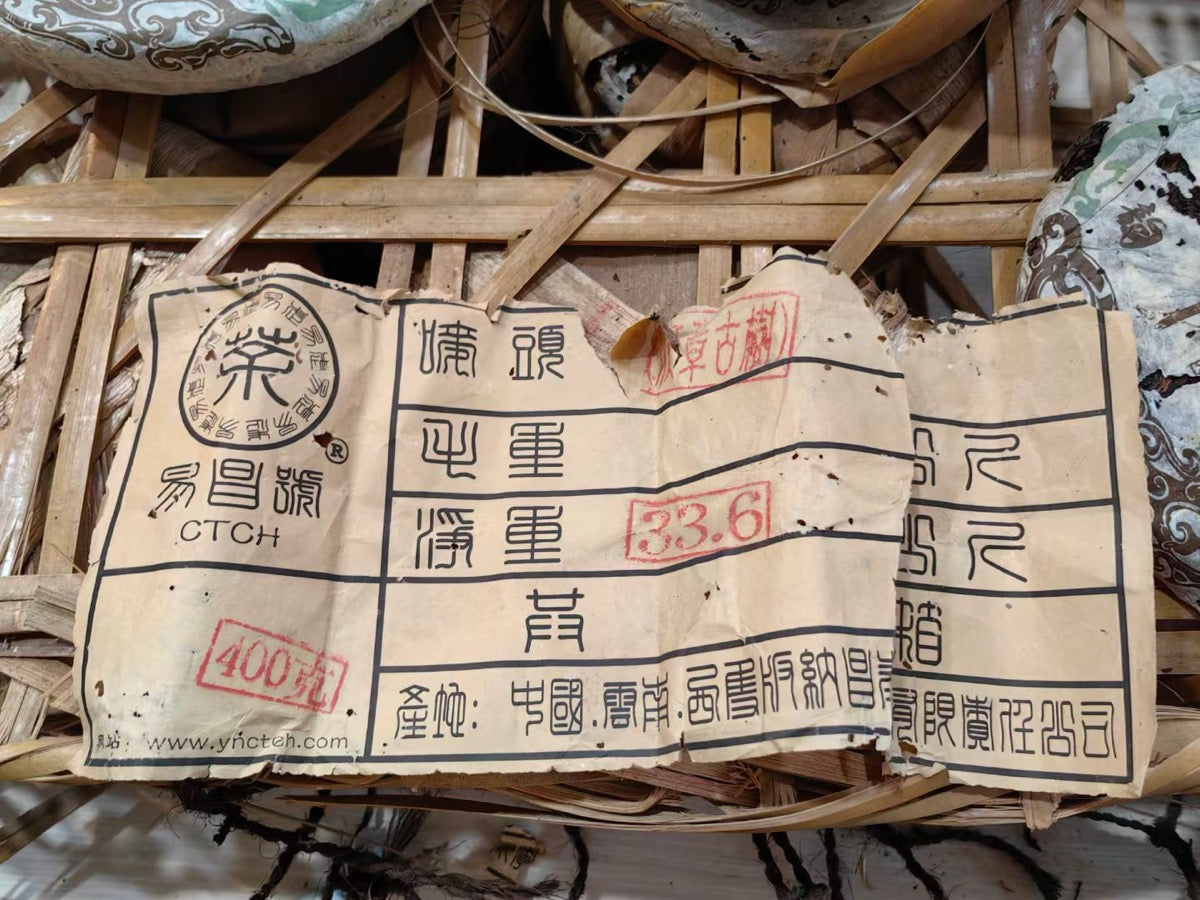 茶
®
易昌號
CTCH
400克
站: www.yncteh.com
嘜頭 章古樹
毛重 公斤
淨重 33.6 公斤
共 箱
產地: 中國.雲南.西雙版納昌 有限責任公司